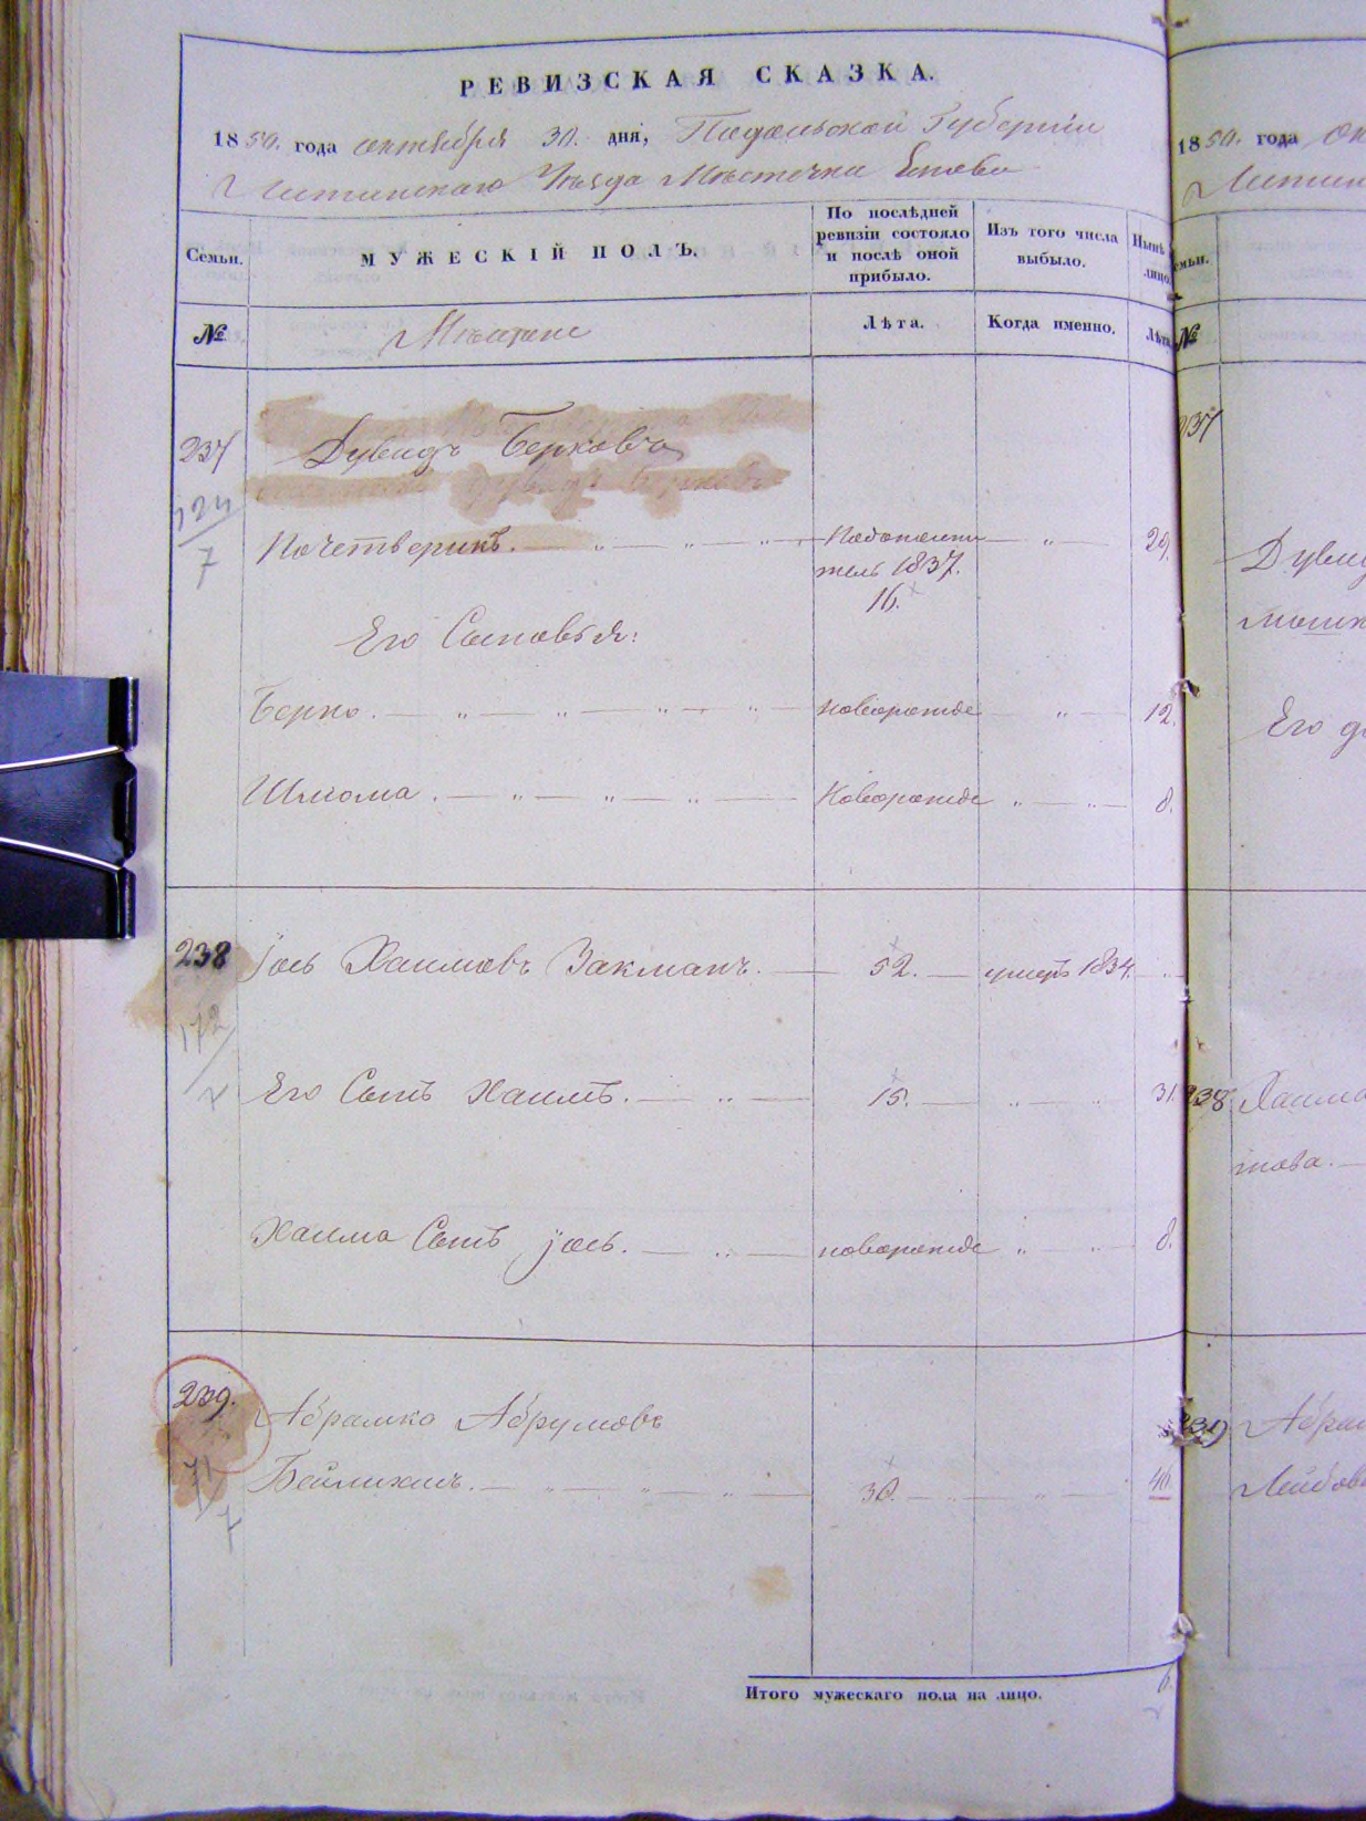 РЕВИЗСКАЯ СКАЗКА.
1850. года октября 30. дня, Подольской Губернии
Литинскаго Уѣзда Мѣстечка
Семьи.
МУЖЕСКІЙ ПОЛЪ.
По послѣдней ревизіи состояло и послѣ оной прибыло.
Изъ того числа выбыло.
Нынѣ лицо
№
Мѣщане
Лѣта.
Когда именно.
Лѣта
237
Дувидъ Берковъ
124/7
Почетверикъ.
29.
тель 1837.
16.
Его Сыновья:
Берко. новорожде 12.
Шлиома. Новорожде 8.
238 Іось Хаимовъ Закманъ. 52. умеръ 1834.
172
Его Сынъ Хаимъ. 15. 31.
Хаима Сынъ Іось. новорожде 8.
239. Абрамко Абрумовъ
Бейлихисъ. 30. 46
Итого мужескаго пола на лицо. 6.
1850. года ок
Литин
№
237
Дувид
Его до
238 Хаима
това.
239 Абрам
Лейбов